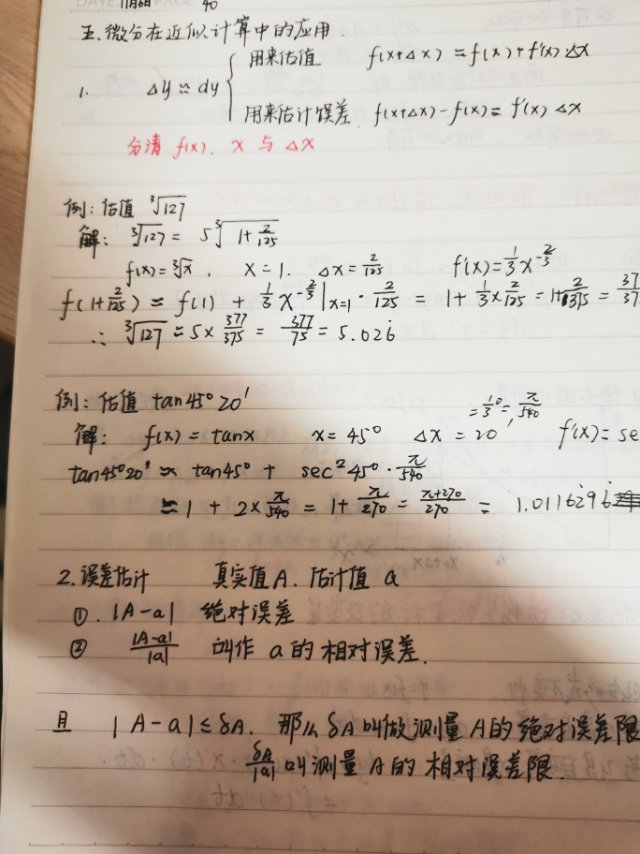 DATE PAGE 40
五、微分在近似计算中的应用.
用来估值 f(x+Δx) ≈ f(x)+f'(x)Δx
1. Δy ≈ dy {
用来估计误差. f(x+Δx)-f(x) ≈ f'(x) Δx
分清 f(x). x 与 Δx
例: 估值 ∛127
解: ∛127 = 5∛(1+2/125)
f(x)=∛x , x=1. Δx=2/125 f'(x)=1/3 x^(-2/3)
f(1+2/125) ≈ f(1) + 1/3 x^(-2/3)|x=1 · 2/125 = 1+1/3×2/125 = 1+2/375 =
∴ ∛127 ≈ 5×377/375 = 377/75 = 5.026̇
例: 估值 tan45°20'
=1/3°=π/540
解: f(x)=tanx x=45° Δx=20' f'(x)=se
tan45°20' ≈ tan45° + sec²45°·π/540
≈ 1 + 2×π/540 = 1+π/270 = (π+270)/270 = 1.0116̇296̇
2. 误差估计 真实值A. 估计值 a
①. |A-a| 绝对误差
② |A-a|/|a| 叫作 a 的相对误差.
且 |A-a|≤δA. 那么 δA 叫做测量A的绝对误差限
δA/|a| 叫测量A的相对误差限.